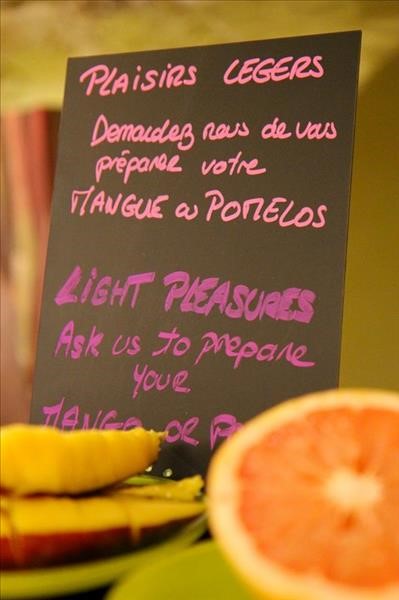 PLAISIRS LEGERS
Demandez nous de vous
préparer votre
MANGUE ou POMELOS
LIGHT PLEASURES
Ask us to prepare
your
MANGO or